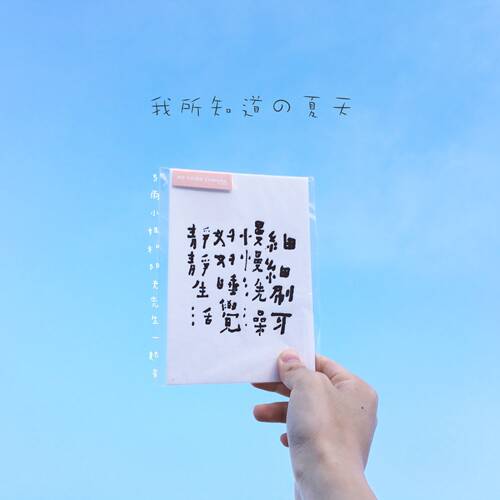 我所知道の夏天
細細刷牙
慢慢洗澡
好好睡覺
靜靜生活
雨小姐和阳光先生一起